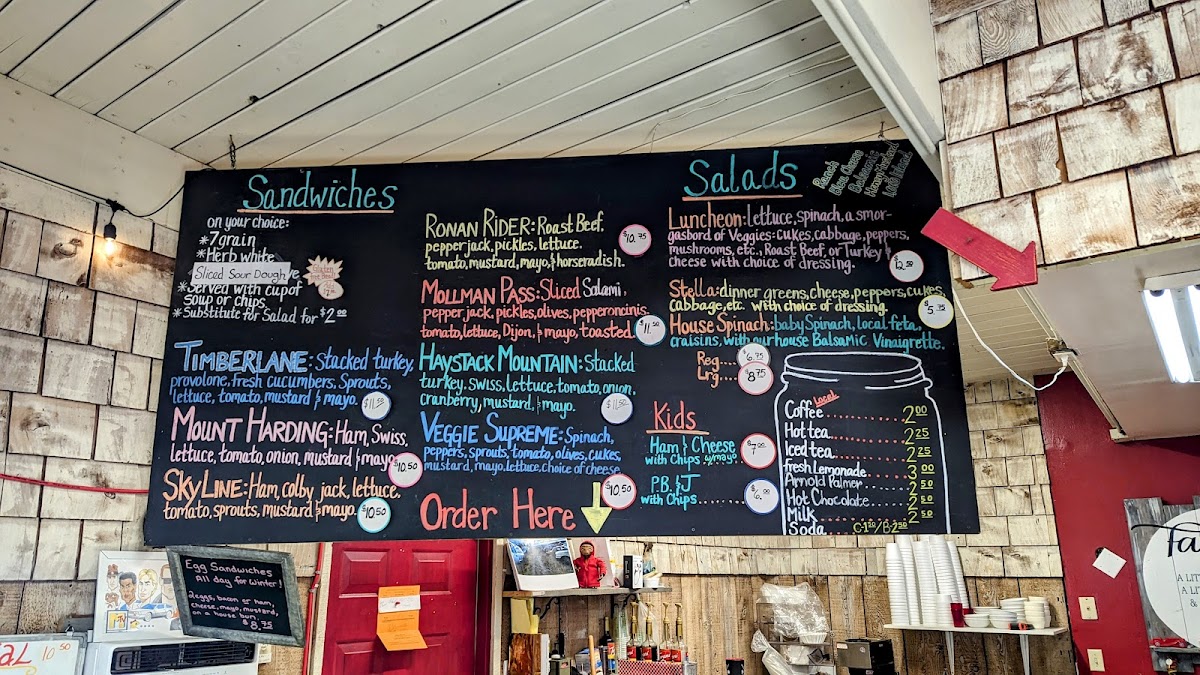 Sandwiches
on your choice:
*7 grain
*Herb white
Sliced Sour Dough
*Served with cup of
soup or chips.
*Substitute for Salad for $2.00
TIMBERLANE: Stacked turkey,
provolone, fresh cucumbers, Sprouts,
lettuce, tomato, mustard & mayo.
$11.50
MOUNT HARDING: Ham, Swiss,
lettuce, tomato, onion, mustard & mayo
$10.50
SKYLINE: Ham, colby jack, lettuce,
tomato, sprouts, mustard & mayo.
$10.50
RONAN RIDER: Roast Beef,
pepper jack, pickles, lettuce,
tomato, mustard, mayo, & horseradish.
$10.75
MOLLMAN PASS: Sliced Salami,
pepper jack, pickles, olives, pepperoncinis,
tomato, lettuce, Dijon, & mayo, toasted.
$11.50
HAYSTACK MOUNTAIN: Stacked
turkey, swiss, lettuce, tomato, onion,
cranberry, mustard, & mayo.
$11.50
VEGGIE SUPREME: Spinach,
peppers, sprouts, tomato, olives, cukes,
mustard, mayo, lettuce, choice of cheese
$10.50
Order Here
Salads
Ranch
Blue Cheese
Balsamic
Luncheon: lettuce, spinach, a smor-
gasbord of Veggies: Cukes, cabbage, peppers,
mushrooms, etc., Roast Beef, or Turkey &
cheese with choice of dressing.
$12.50
Stella: dinner greens, cheese, peppers, cukes,
Cabbage, etc. with choice of dressing.
$5.75
House Spinach: baby Spinach, local feta,
craisins, with our house Balsamic Vinaigrette.
Reg... $6.75
Lrg... $8.75
Kids
Ham & Cheese
with Chips w/mayo
$7.00
P.B. & J
with Chips
$6.00
Local
Coffee 2.00
Hot tea 2.25
Iced tea 2.25
fresh Lemonade 3.00
Arnold Palmer 2.50
Hot Chocolate 2.50
Milk 2.50
Soda C-1.50/B-2.50
Egg Sandwiches
All day for winter!
2 eggs, bacon or ham,
cheese, mayo, mustard,
on a house bun
$8.75
10.50
fa
A LIT
A LIT
&